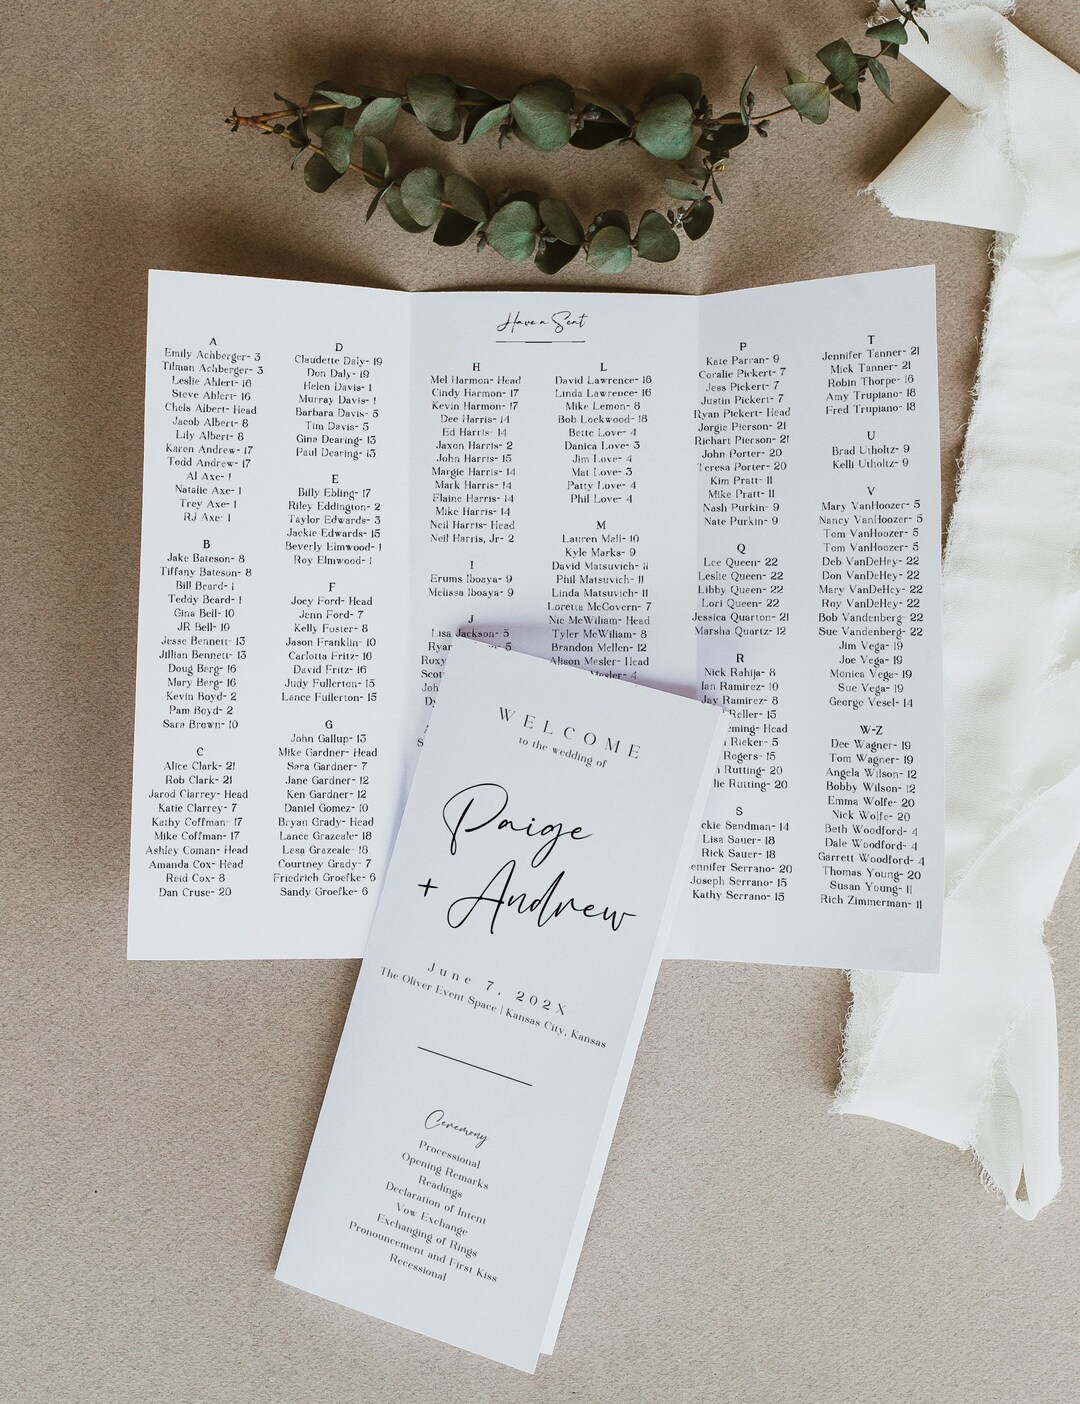 Have a Seat
A
Emily Achberger- 3
Tilman Achberger- 3
Leslie Ahlert- 16
Steve Ahlert- 16
Chels Albert- Head
Jacob Albert- 8
Lily Albert- 8
Karen Andrew- 17
Todd Andrew- 17
Al Axe- 1
Natalie Axe- 1
Trey Axe- 1
RJ Axe- 1
B
Jake Bateson- 8
Tiffany Bateson- 8
Bill Beard- 1
Teddy Beard- 1
Gina Bell- 10
JR Bell- 10
Jesse Bennett- 13
Jillian Bennett- 13
Doug Berg- 16
Mary Berg- 16
Kevin Boyd- 2
Pam Boyd- 2
Sara Brown- 10
C
Alice Clark- 21
Rob Clark- 21
Jarod Clarrey- Head
Katie Clarrey- 7
Kathy Coffman- 17
Mike Coffman- 17
Ashley Coman- Head
Amanda Cox- Head
Reid Cox- 8
Dan Cruse- 20
D
Claudette Daly- 19
Don Daly- 19
Helen Davis- 1
Murray Davis- 1
Barbara Davis- 5
Tim Davis- 5
Gina Dearing- 13
Paul Dearing- 13
E
Billy Ebling- 17
Riley Eddington- 2
Taylor Edwards- 3
Jackie Edwards- 15
Beverly Elmwood- 1
Roy Elmwood- 1
F
Joey Ford- Head
Jenn Ford- 7
Kelly Foster- 8
Jason Franklin- 10
Carlotta Fritz- 16
David Fritz- 16
Judy Fullerton- 15
Lance Fullerton- 15
G
John Gallup- 13
Mike Gardner- Head
Sara Gardner- 7
Jane Gardner- 12
Ken Gardner- 12
Daniel Gomez- 10
Bryan Grady- Head
Lance Grazeale- 18
Lesa Grazeale- 18
Courtney Grady- 7
Friedrich Groefke- 6
Sandy Groefke- 6
H
Mel Harmon- Head
Cindy Harmon- 17
Kevin Harmon- 17
Dee Harris- 14
Ed Harris- 14
Jaxon Harris- 2
John Harris- 15
Margie Harris- 14
Mark Harris- 14
Elaine Harris- 14
Mike Harris- 14
Neil Harris- Head
Neil Harris, Jr- 2
I
Erums Iboaya- 9
Melissa Iboaya- 9
J
Lisa Jackson- 5
Ryan 5
Roxy
Scot
Joh
L
David Lawrence- 16
Linda Lawrence- 16
Mike Lemon- 8
Bob Lockwood- 18
Bette Love- 4
Danica Love- 3
Jim Love- 4
Mat Love- 3
Patty Love- 4
Phil Love- 4
M
Lauren Mall- 10
Kyle Marks- 9
David Matsuvich- 11
Phil Matsuvich- 11
Linda Matsuvich- 11
Loretta McGovern- 7
Nic McWiliam- Head
Tyler McWiliam- 8
Brandon Mellen- 12
Alison Mesler- Head
Mesler- 4
P
Kate Parran- 9
Coralie Pickert- 7
Jess Pickert- 7
Justin Pickert- 7
Ryan Pickert- Head
Jorgie Pierson- 21
Richart Pierson- 21
John Porter- 20
Teresa Porter- 20
Kim Pratt- 11
Mike Pratt- 11
Nash Purkin- 9
Nate Purkin- 9
Q
Lee Queen- 22
Leslie Queen- 22
Libby Queen- 22
Lori Queen- 22
Jessica Quarton- 21
Marsha Quartz- 12
R
Nick Rahija- 8
Ian Ramirez- 10
Jay Ramirez- 8
Reller- 15
eming- Head
Rieker- 5
Rogers- 15
Rutting- 20
lie Rutting- 20
S
ckie Sandman- 14
Lisa Sauer- 18
Rick Sauer- 18
ennifer Serrano- 20
Joseph Serrano- 15
Kathy Serrano- 15
T
Jennifer Tanner- 21
Mick Tanner- 21
Robin Thorpe- 16
Amy Trupiano- 18
Fred Trupiano- 18
U
Brad Utholtz- 9
Kelli Utholtz- 9
V
Mary VanHoozer- 5
Nancy VanHoozer- 5
Tom VanHoozer- 5
Tom VanHoozer- 5
Deb VanDeHey- 22
Don VanDeHey- 22
Mary VanDeHey- 22
Roy VanDeHey- 22
Bob Vandenberg- 22
Sue Vandenberg- 22
Jim Vega- 19
Joe Vega- 19
Monica Vega- 19
Sue Vega- 19
George Vesel- 14
W-Z
Dee Wagner- 19
Tom Wagner- 19
Angela Wilson- 12
Bobby Wilson- 12
Emma Wolfe- 20
Nick Wolfe- 20
Beth Woodford- 4
Dale Woodford- 4
Garrett Woodford- 4
Thomas Young- 20
Susan Young- 11
Rich Zimmerman- 11
WELCOME
to the wedding of
Paige
+ Andrew
June 7, 202X
The Oliver Event Space | Kansas City, Kansas
Ceremony
Processional
Opening Remarks
Readings
Declaration of Intent
Vow Exchange
Exchanging of Rings
Pronouncement and First Kiss
Recessional